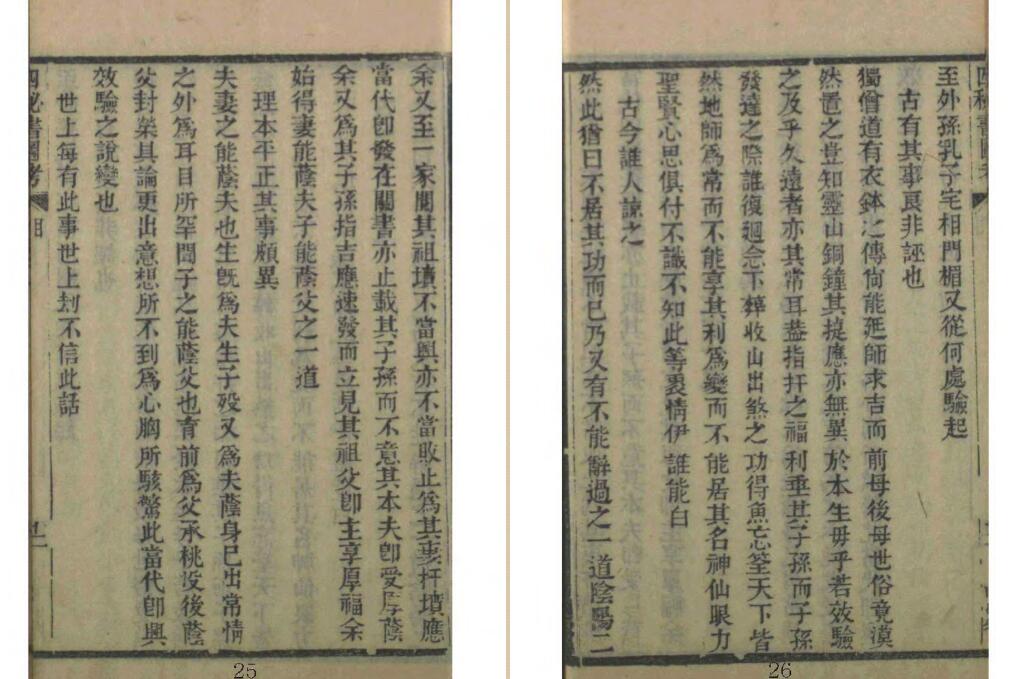 余又至一家閱其祖墳不當興亦不當敗止爲其妻扞墳應
當代卽發在閱書亦止載其子孫而不意其本夫卽受厚蔭
余又爲其子孫指吉應速發而立見其祖父卽主享厚福余
始得妻能蔭夫子能蔭父之一道
理本平正其事頗異
夫妻之能蔭夫也生旣爲夫生子歿又爲夫蔭身已出常情
之外爲耳目所罕聞子之能蔭父也育前爲父承桃沒後蔭
父封榮具論更出意想所不到爲心胸所駭驚此當代卽興
效驗之說變也
世上每有此事世上刦不信此話
四秘書圖考
25
至外孫乳子宅相門楣又從何處驗起
古有其事良非誣也
獨僧道有衣鉢之傳尙能延師求吉而前母後母世俗竟漠
然置之豈知靈山銅鐘其捷應亦無異於本生毋乎若效驗
之及乎久遠者亦其常耳葢指扞之福利垂其子孫而子孫
發達之際誰復廻念下葬收山出煞之功得魚忘筌天下皆
然地師爲常而不能享其利爲變而不能居其名神仙眼力
聖賢心思俱付不識不知此等衷情伊誰能白
古今誰人諒之
然此猶曰不居其功而已乃又有不能辭過之一道陰陽二
26